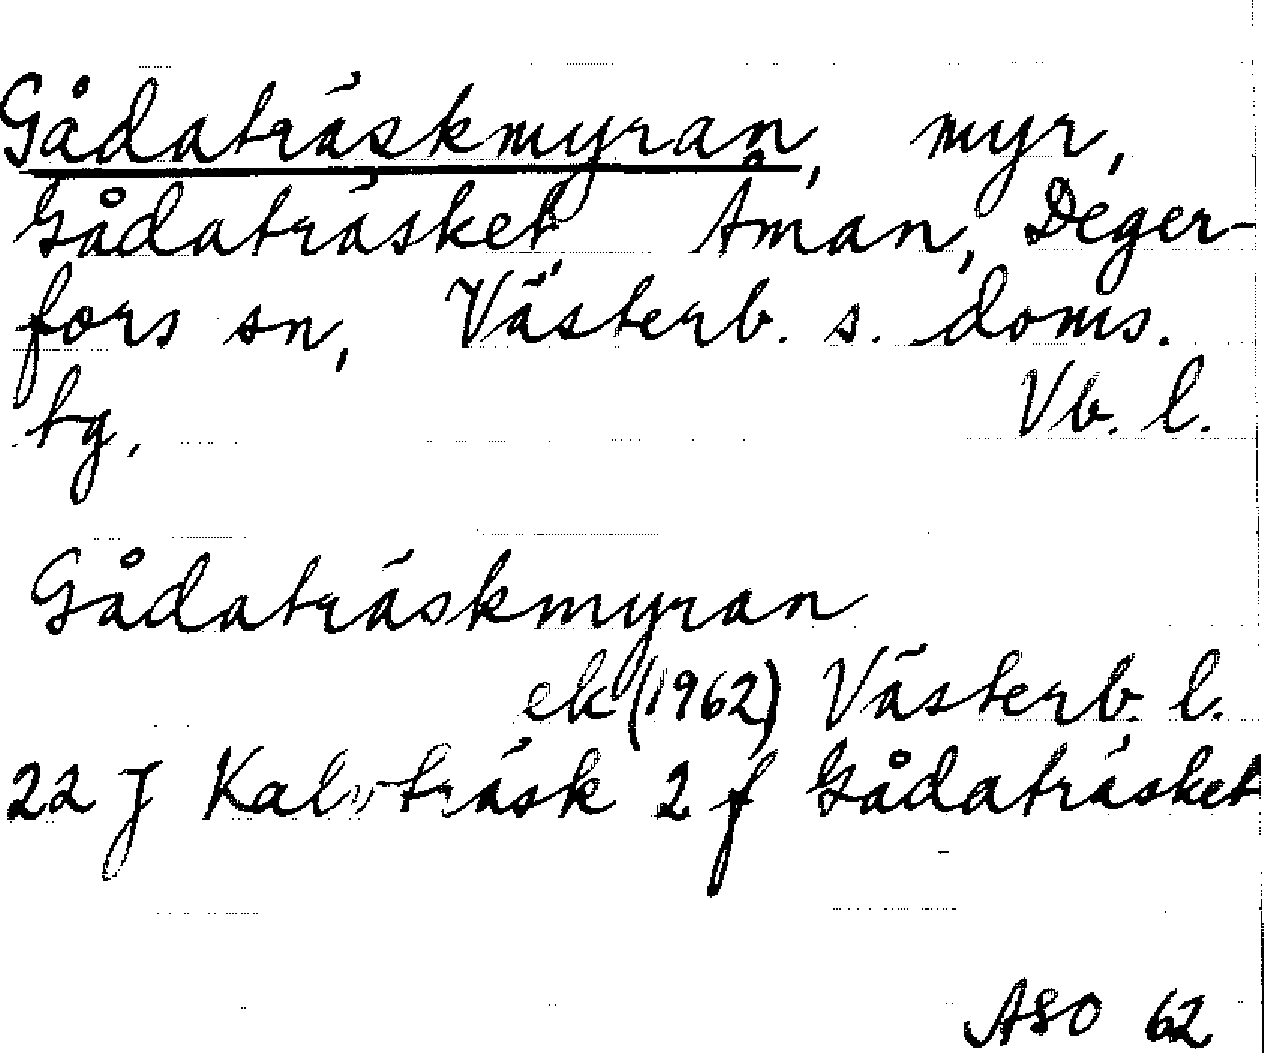 Gådaträskmyran, myr,
Gådaträsket Åman, Deger-
fors sn, Västerb. s. doms.
tg. Vb. l.
Gådaträskmyran
ek (1962) Västerb. l.
22 J Kalvträsk 2 f Gådaträsket
ASO 62